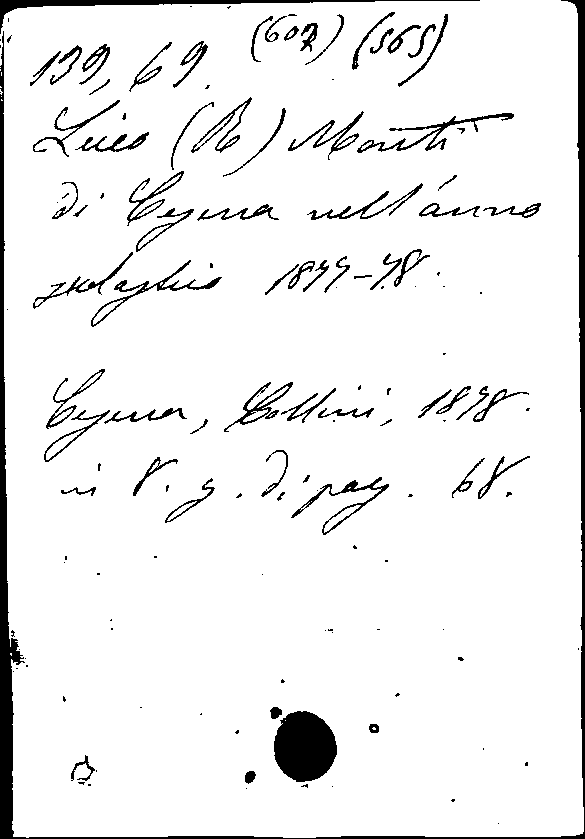 139, 69. (607) (565)
Liceo (R) Monti
di Cesena nell'anno
scolastico 1877-78.
Cesena, Collini, 1878.
in 8. g. di pag. 68.